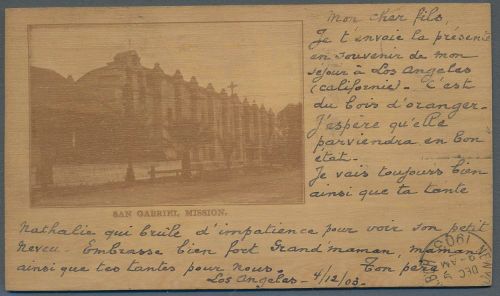 Mon cher fils,
Je t'envoie la présente
en souvenir de mon
séjour à Los Angeles
(californie) - C'est
du bois d'oranger.
J'espère qu'elle
parviendra en bon
état.
Je vais toujours bien
ainsi que ta tante
SAN GABRIEL MISSION.
Nathalie qui brûle d'impatience pour voir son petit
neveu - Embrasse bien fort Grand'maman, maman
ainsi que tes tantes pour nous. Ton père
Los Angeles - 4/12/03.
DEC